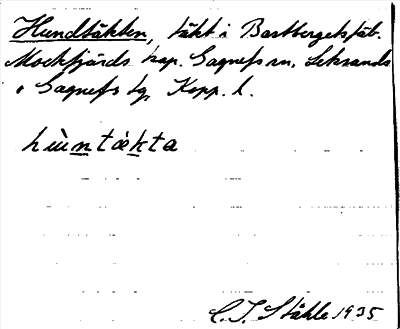 Hundtäkten, täkt i Bastbergets fäb.
Mockfjärds kap. Gagnefs sn, Leksands
o Gagnefs tg, Kopp. l.
hùntǽkta
C. I. Ståhle 1935